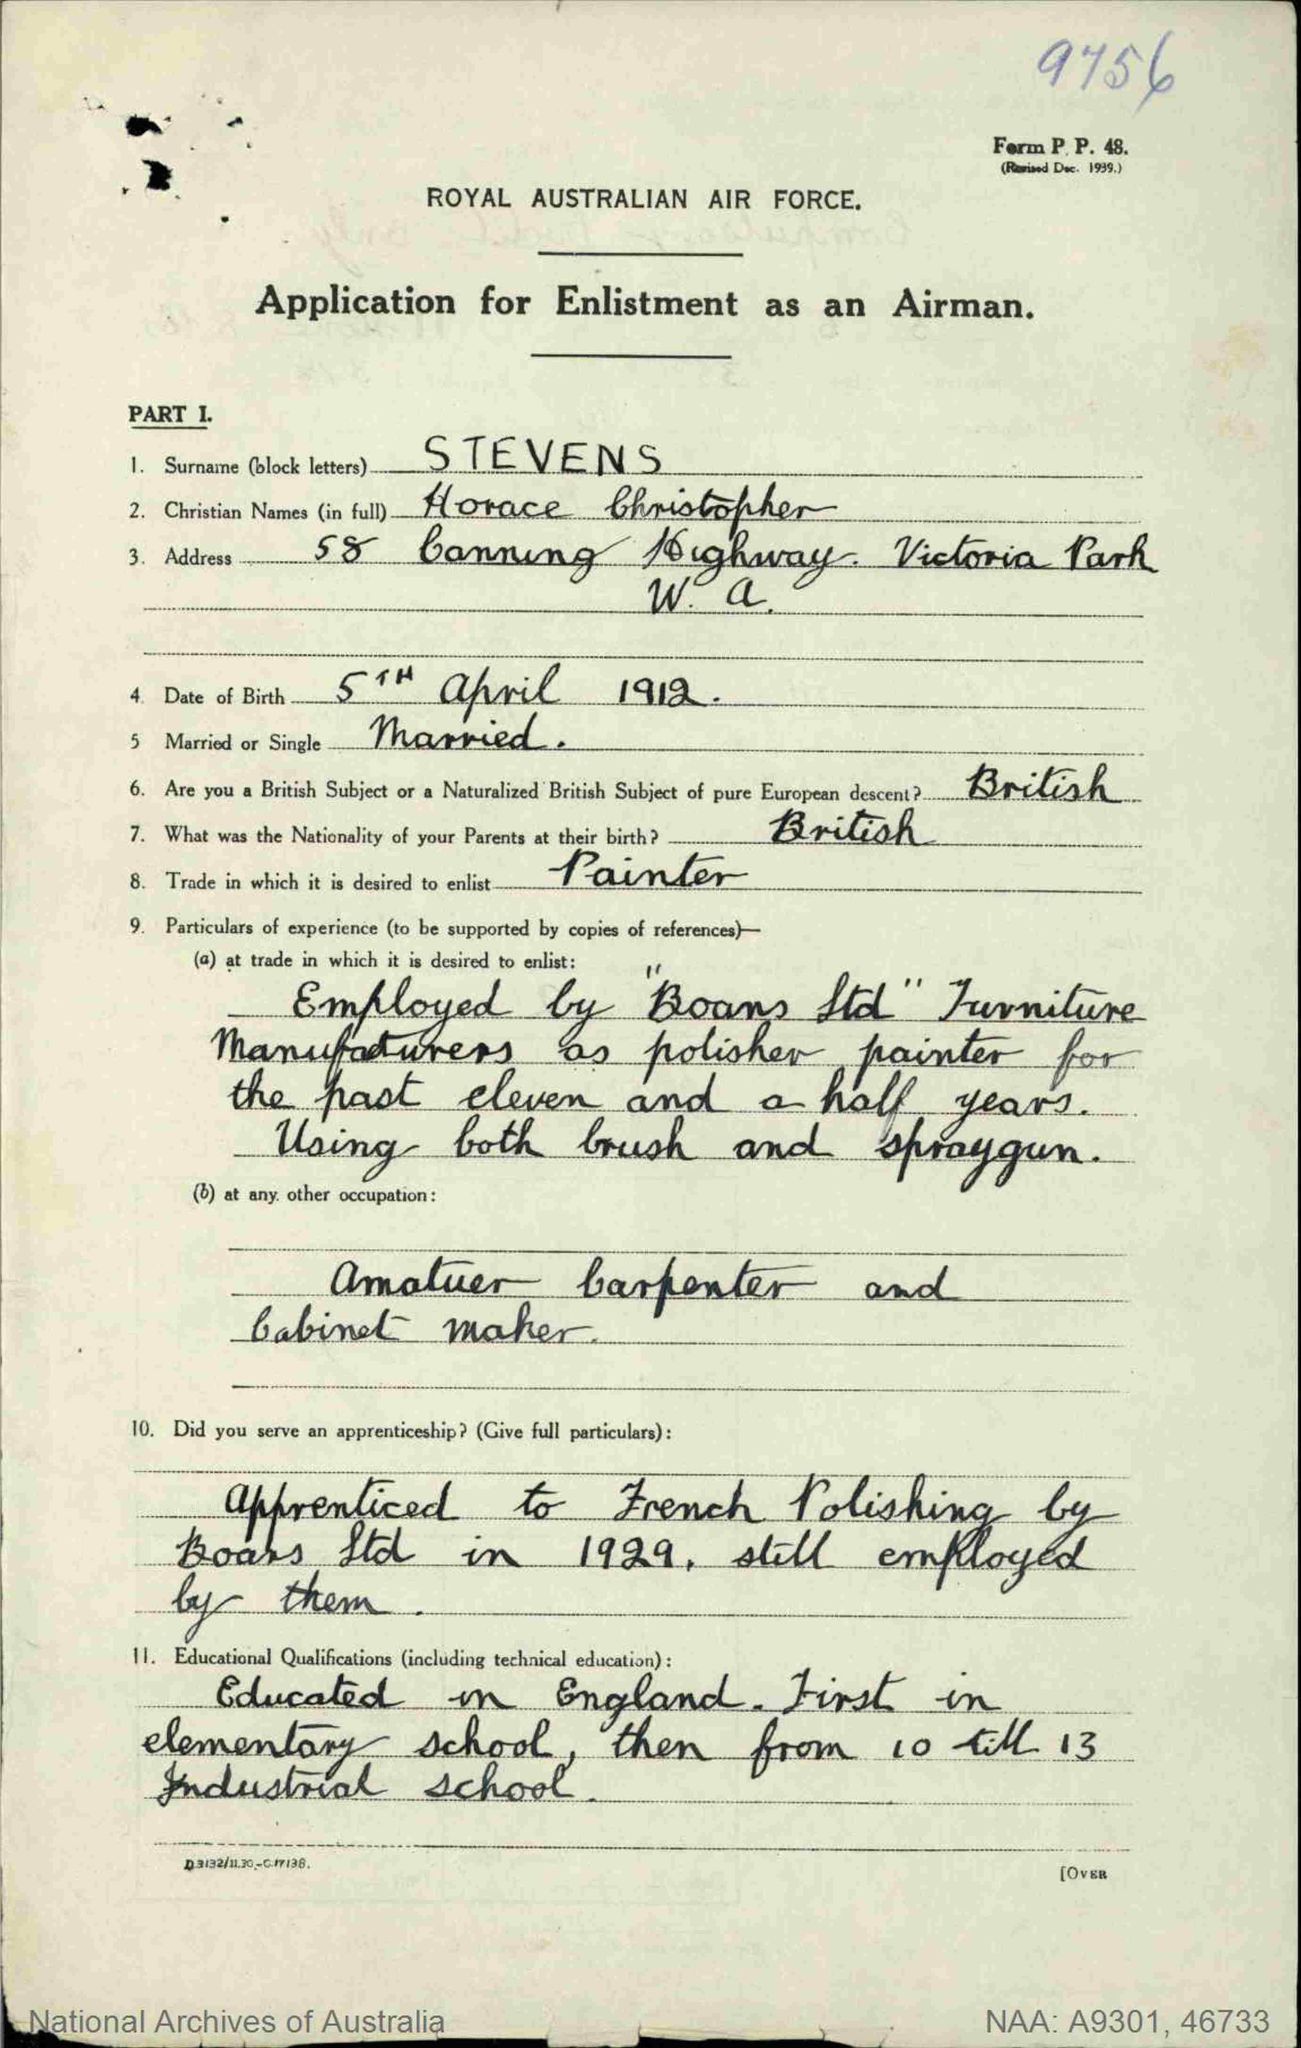 9756
Form P. P. 48.
(Revised Dec. 1939.)
ROYAL AUSTRALIAN AIR FORCE.
Application for Enlistment as an Airman.
PART I.
1. Surname (block letters) STEVENS
2. Christian Names (in full) Horace Christopher
3. Address 58 Canning Highway. Victoria Park
W. A.
4 Date of Birth 5TH April 1912.
5 Married or Single Married.
6. Are you a British Subject or a Naturalized British Subject of pure European descent? British
7. What was the Nationality of your Parents at their birth? British
8. Trade in which it is desired to enlist Painter
9. Particulars of experience (to be supported by copies of references)—
(a) at trade in which it is desired to enlist:
Employed by "Boans Ltd" Furniture
Manufacturers as polisher painter for
the past eleven and a half years.
Using both brush and spraygun.
(b) at any other occupation:
Amatuer Carpenter and
Cabinet maker.
10. Did you serve an apprenticeship? (Give full particulars):
Apprenticed to French Polishing by
Boans Ltd in 1929, still employed
by them.
11. Educational Qualifications (including technical education):
Educated in England. First in
elementary school, then from 10 till 13
Industrial school.
D.3132/11.39.—C.17138.
[OVER
National Archives of Australia
NAA: A9301, 46733